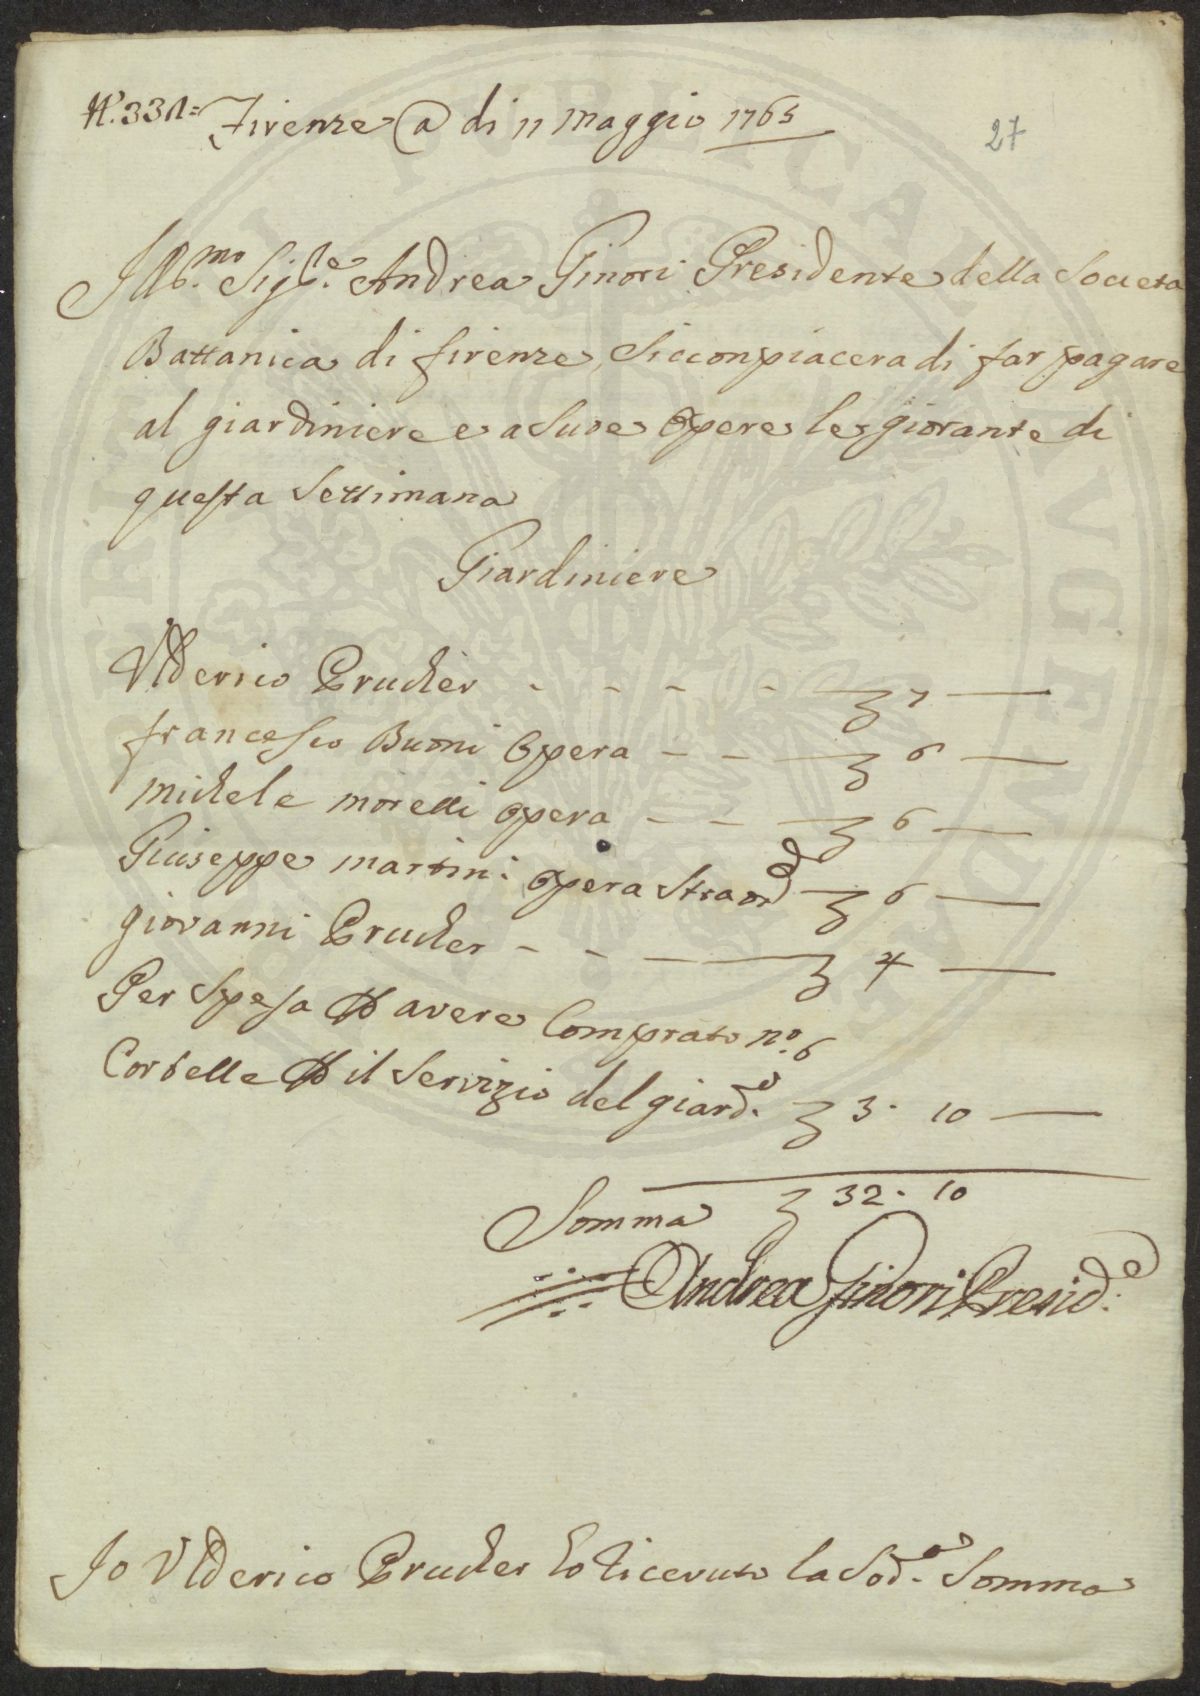 N.° 331= Firenze a di 11 Maggio 1765
27
Ill.mo Sig.re Andrea Ginori Presidente della Societa
Battanica di firenze, Siccompiacera di far pagare
al giardiniere e a Sue Opere le giorante di
questa Settimana
Giardiniere
Ulderico Prucker - - - - 7 —
francesco Buoni Opera - - 6 —
Michele Morelli opera - - 6 —
Giuseppe Martini opera Straord 6 —
giovanni Prucker - - - 4 —
Per Spesa avere Comprato n.° 6
Corbelle il Servizio del giard.o 3. 10 —
Somma 32. 10
Andrea Ginori Presid.e
Io Ulderico Prucker ho Ricevuto la Sod.a Somma